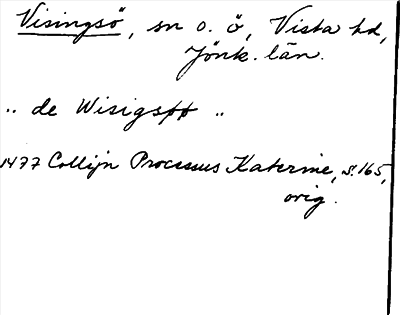 Visingsö, sn o. ö, Vista hd,
Jönk. län.
„ de Wisigsøø „
1477 Collijn Processus Katerine, s. 165,
orig.